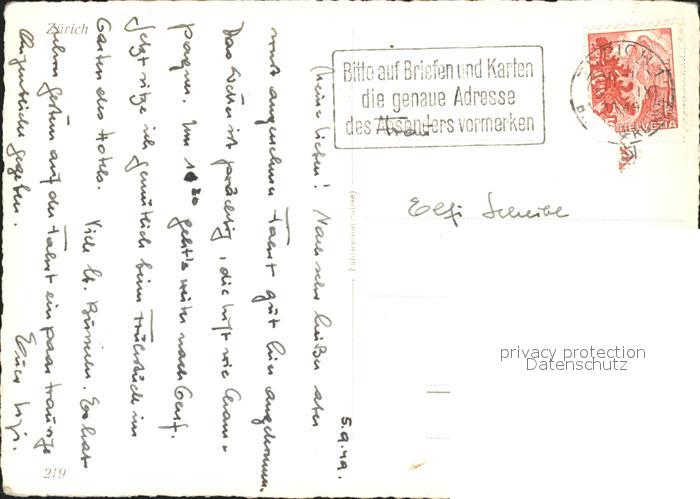 Zürich
5.9.49.
Meine Lieben! Nach sehr heißer aber
sonst angenehmer Fahrt gut hier angekommen.
Das Wetter ist prächtig, die Luft wie Cham-
pagner. Um 10 20 geht's weiter nach Genf.
Jetzt sitze ich gemütlich beim Frühstück im
Garten des Hotels. Viele lb. Bussien. Es hat
schon gestern auf der Fahrt ein paar traurige
Augenblicke gegeben.
Eure
219
Bitte auf Briefen und Karten
die genaue Adresse
des Absenders vermerken
HELVETIA
Frau
Elsi Scheibe
privacy protection
Datenschutz